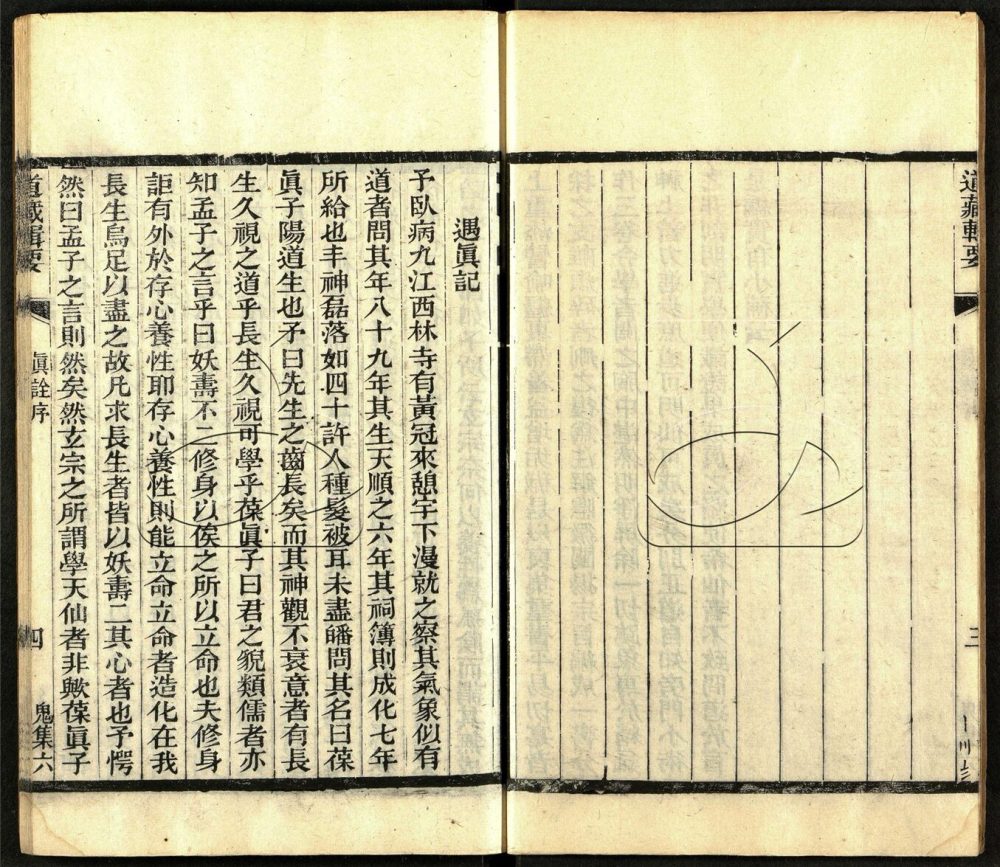 道藏輯要
三
遇眞記
予臥病九江西林寺有黃冠來憩宇下漫就之察其氣象似有
道者問其年八十九年其生天順之六年其祠簿則成化七年
所給也丰神磊落如四十許人種髮被耳未盡皤問其名曰葆
眞子陽道生也予曰先生之齒長矣而其神觀不衰意者有長
生久視之道乎長生久視可學乎葆眞子曰君之貌類儒者亦
知孟子之言乎曰妖壽不二修身以俟之所以立命也夫修身
詎有外於存心養性耶存心養性則能立命立命者造化在我
長生烏足以盡之故凡求長生者皆以妖壽二其心者也予愕
然曰孟子之言則然矣然玄宗之所謂學天仙者非歟葆眞子
道藏輯要
眞詮序
四
鬼集六